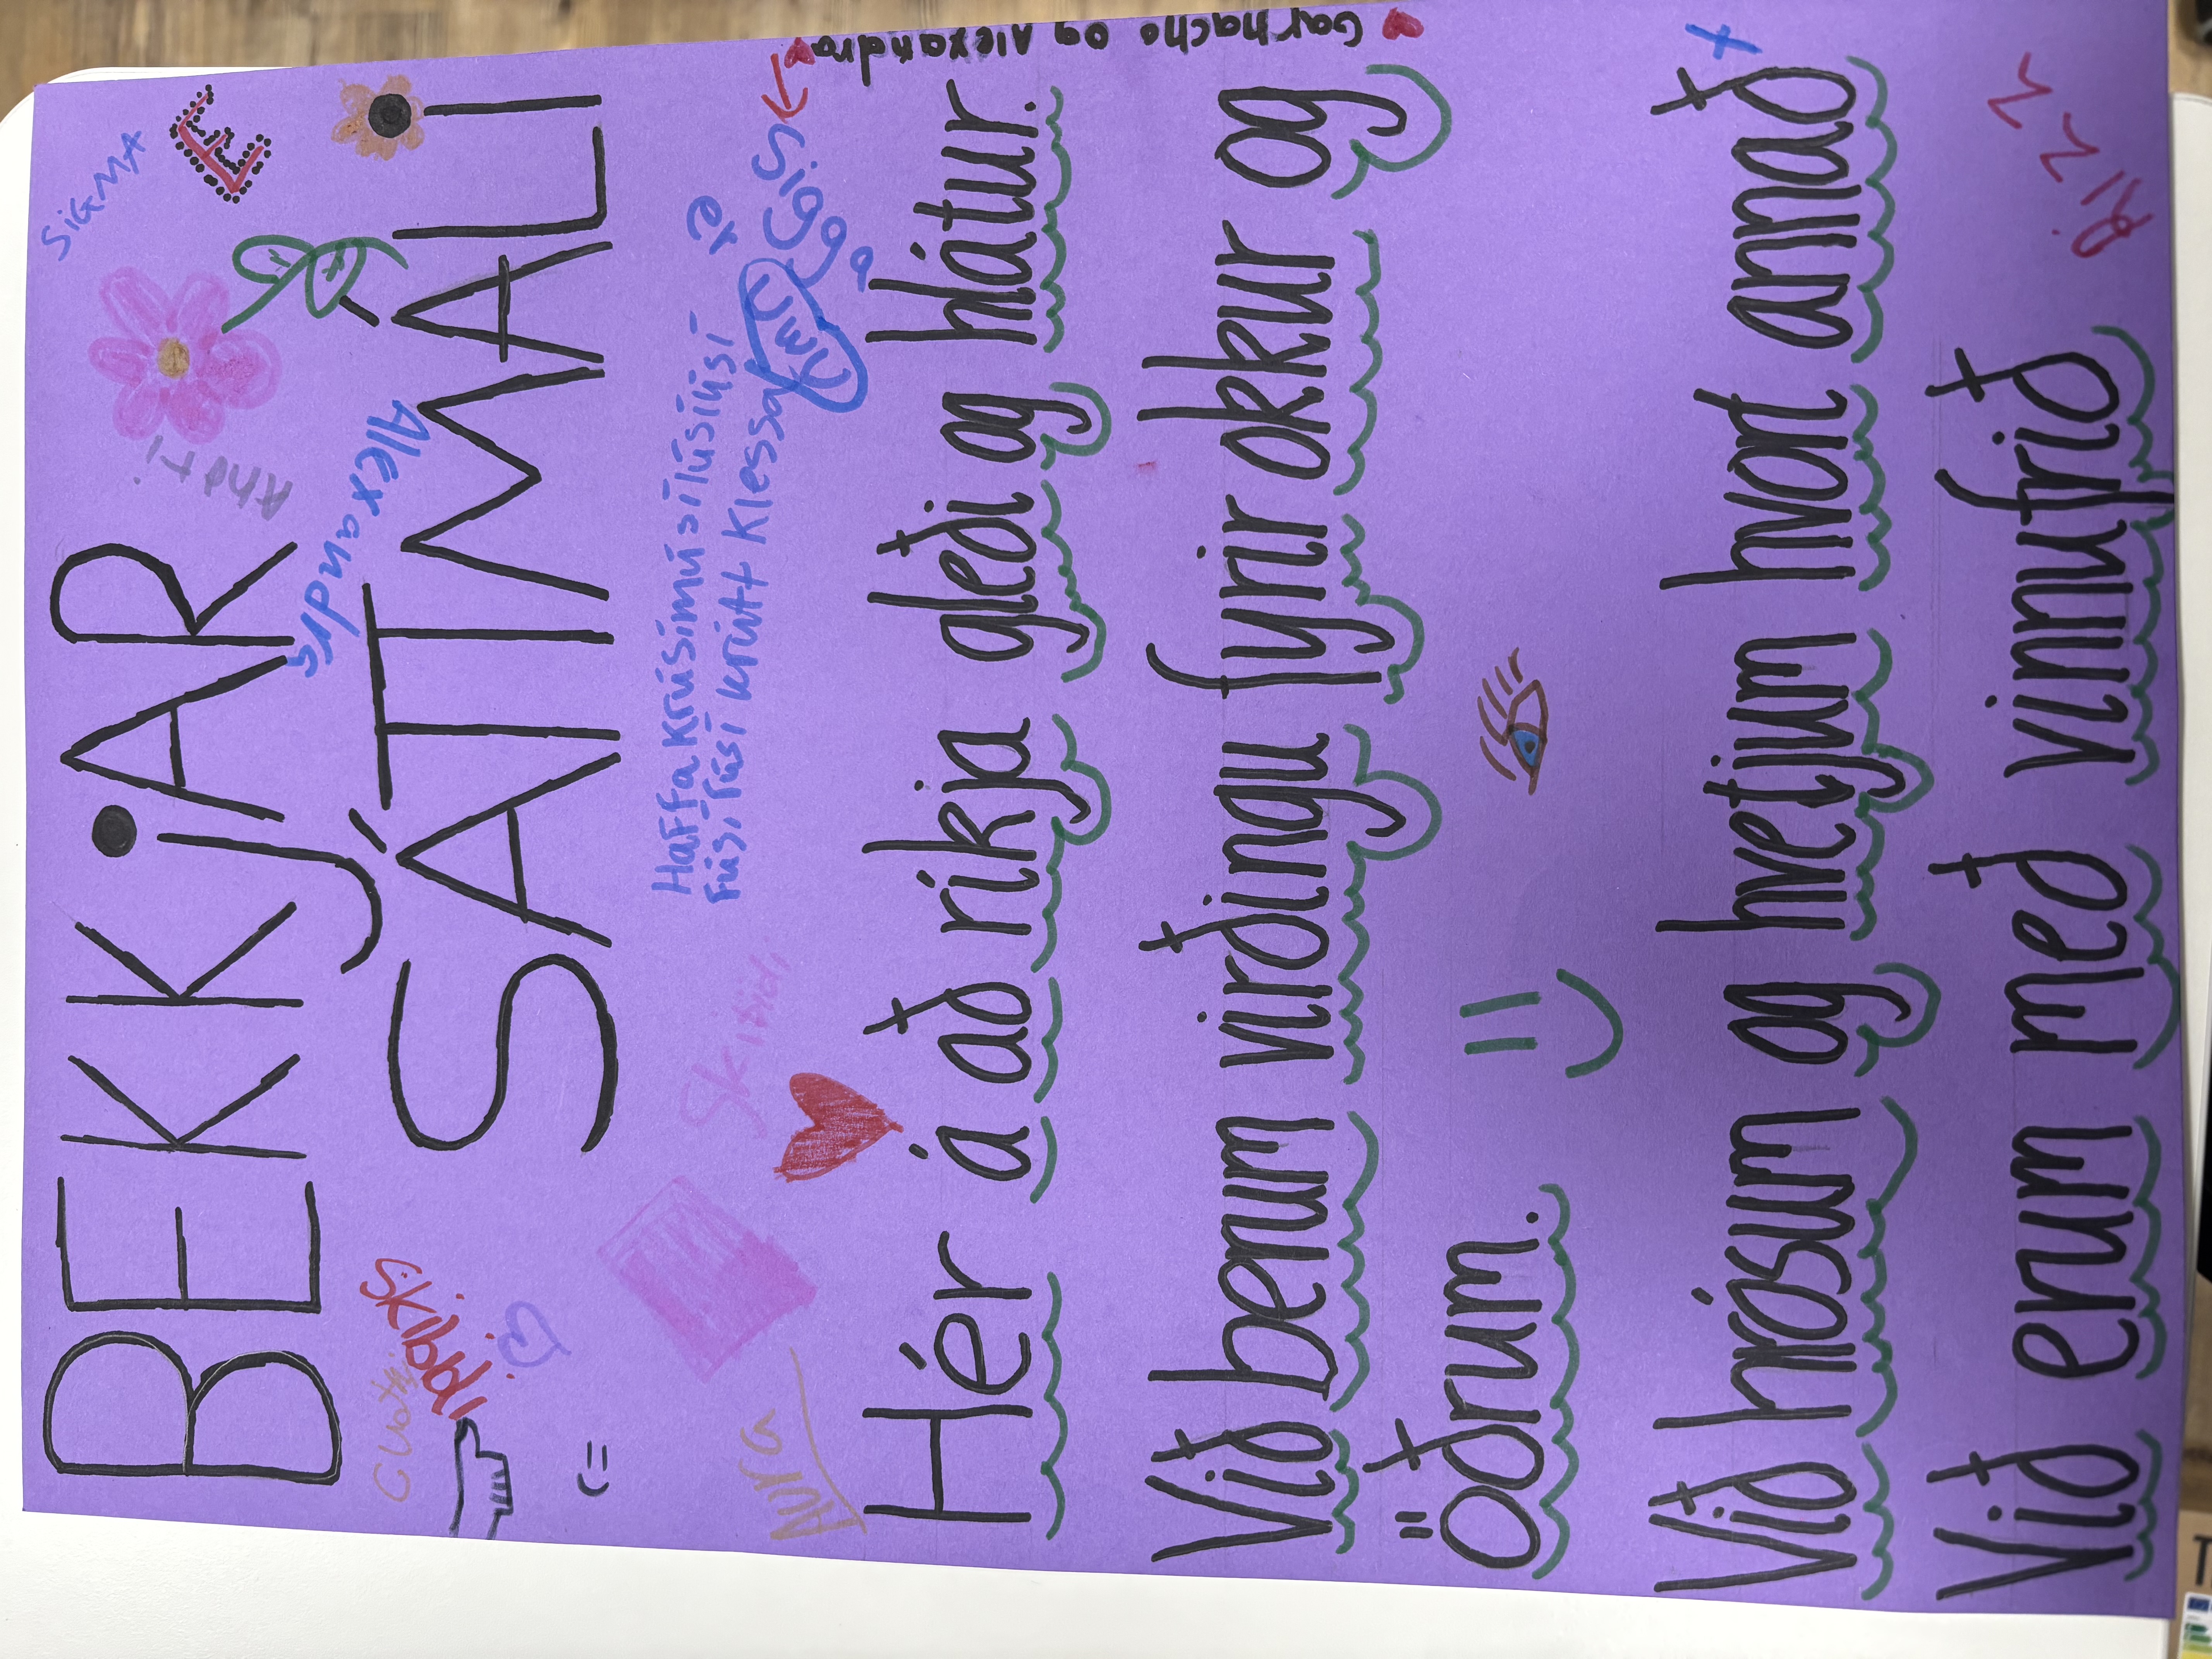 BEKKjAR
SÁTTMÁLI
SiGMA
E
Anoti
Alexandra
Skibbdi
(=
Skibidi
Haffa krúsímúsílúsíúsí
Fúsí rúsí krútt klessa
er
Sigga
Nura
Garnacho og Alexandra
Hér á að ríkja gleði og hlátur.
Við berum virðingu fyrir okkur og
öðrum.
Við hrósum og hvetjum hvort annað
Við erum með vinnufrið
Rizz